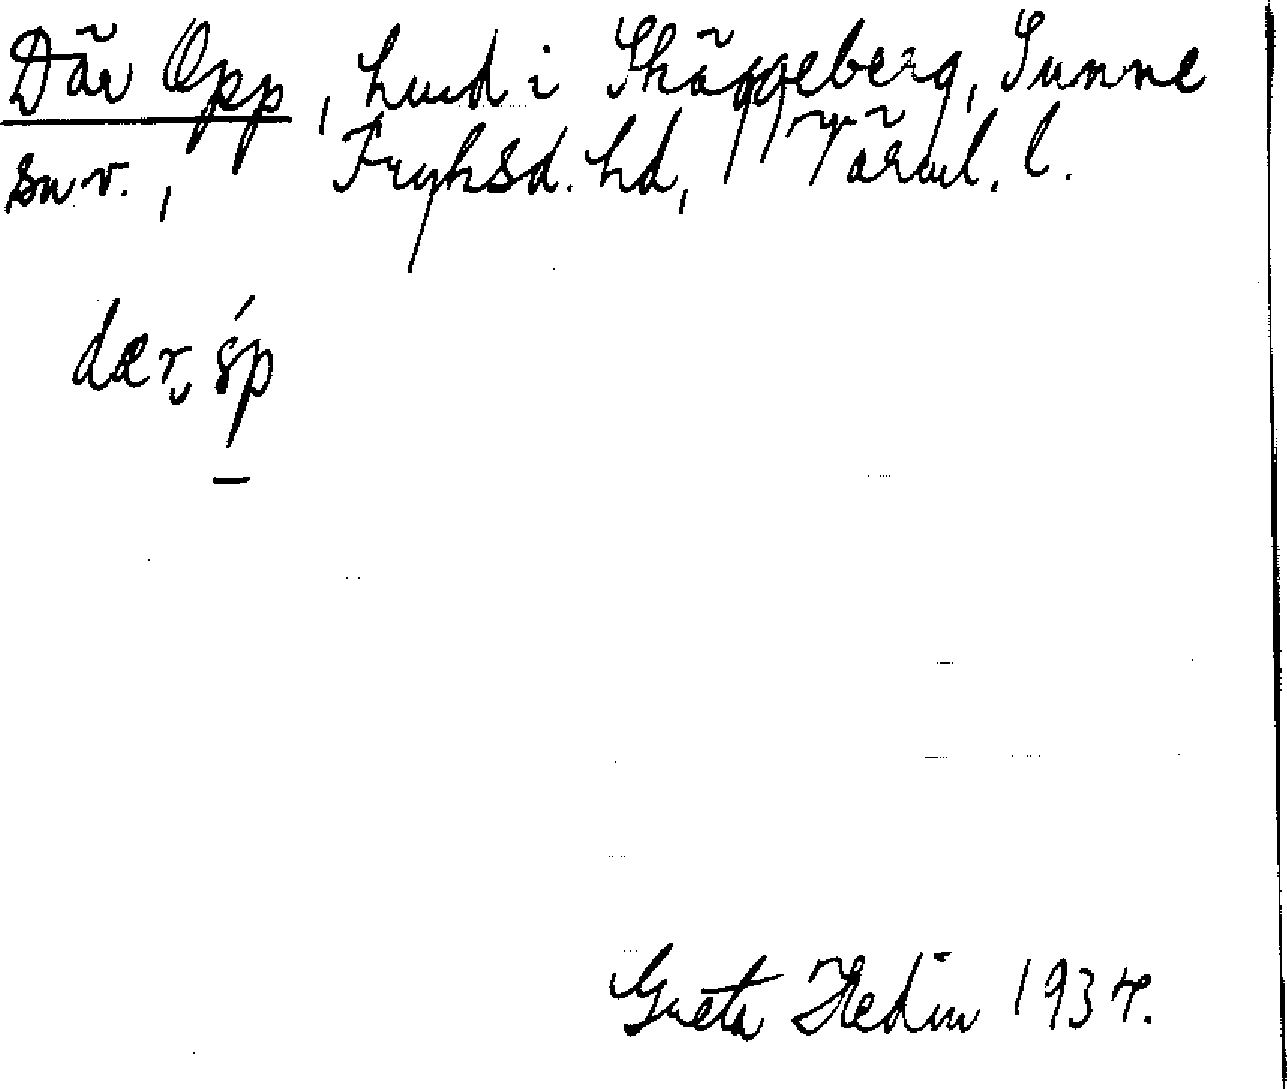 Där Opp, hmd i Skäggeberg, Sunne
sn v., Fryksd. hd, Värml. l.
Greta Hedin 1934.